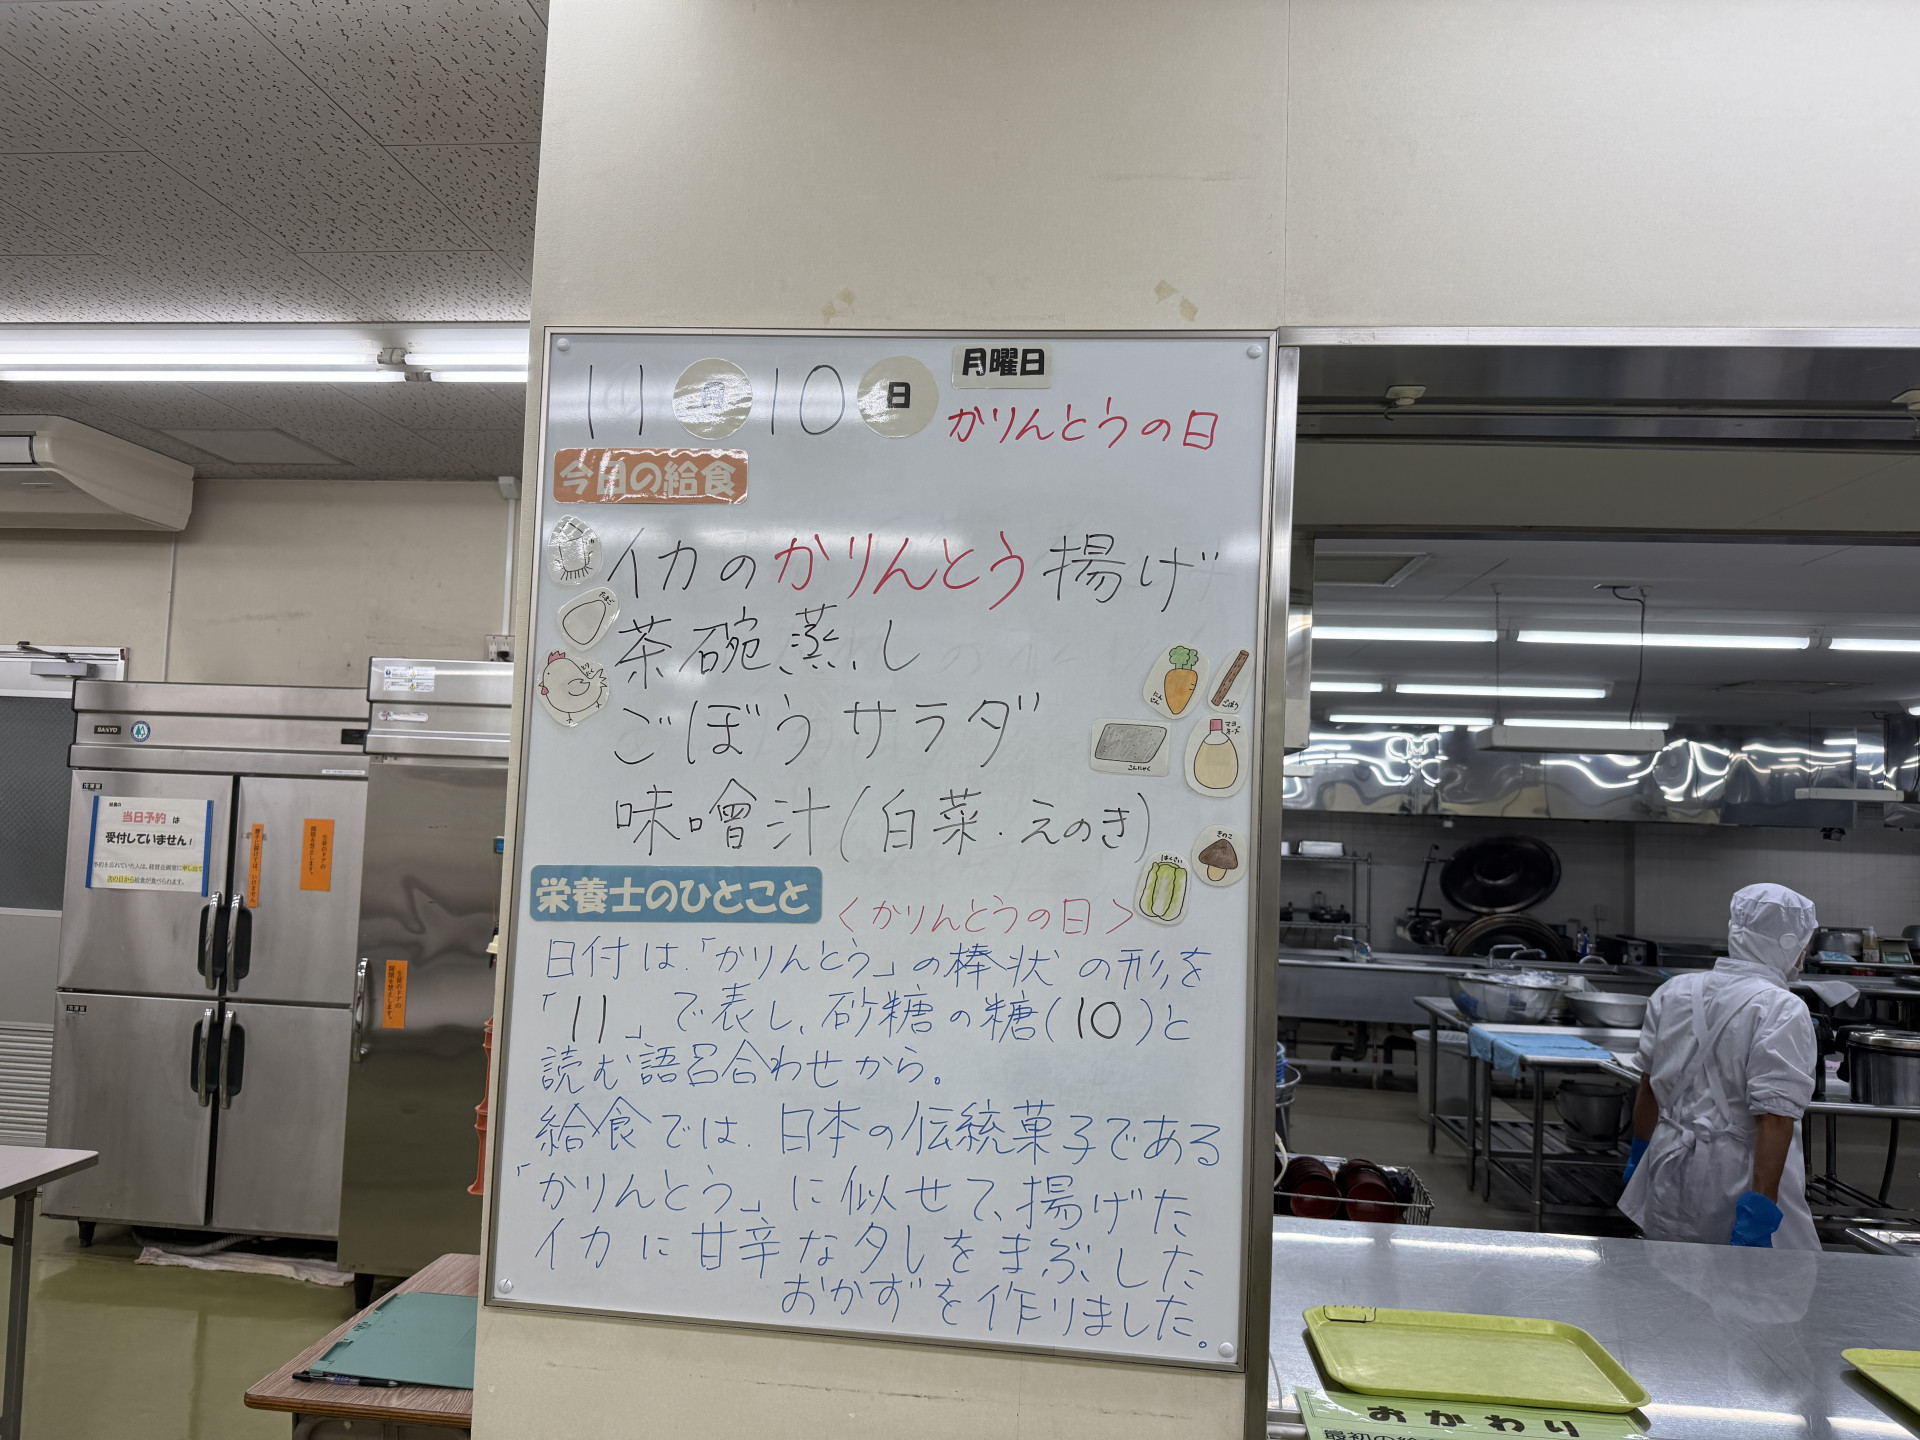 11月10日 月曜日
かりんとうの日
今日の給食
イカのかりんとう揚げ
たまご
茶碗蒸し
とりにく
ごぼうサラダ
にんじん
ごぼう
こんにゃく
マヨネーズ
味噌汁(白菜・えのき)
きのこ
はくさい
栄養士のひとこと
<かりんとうの日>
日付は、「かりんとう」の棒状の形を
「11」で表し、砂糖の糖(10)と
読む語呂合わせから。
給食では、日本の伝統菓子である
「かりんとう」に似せて、揚げた
イカに甘辛なタレをまぶした
おかずを作りました。
SANYO
冷蔵室
給食の
当日予約は
受付していません!
次の日から給食が食べられます。
冷蔵室
おかわり